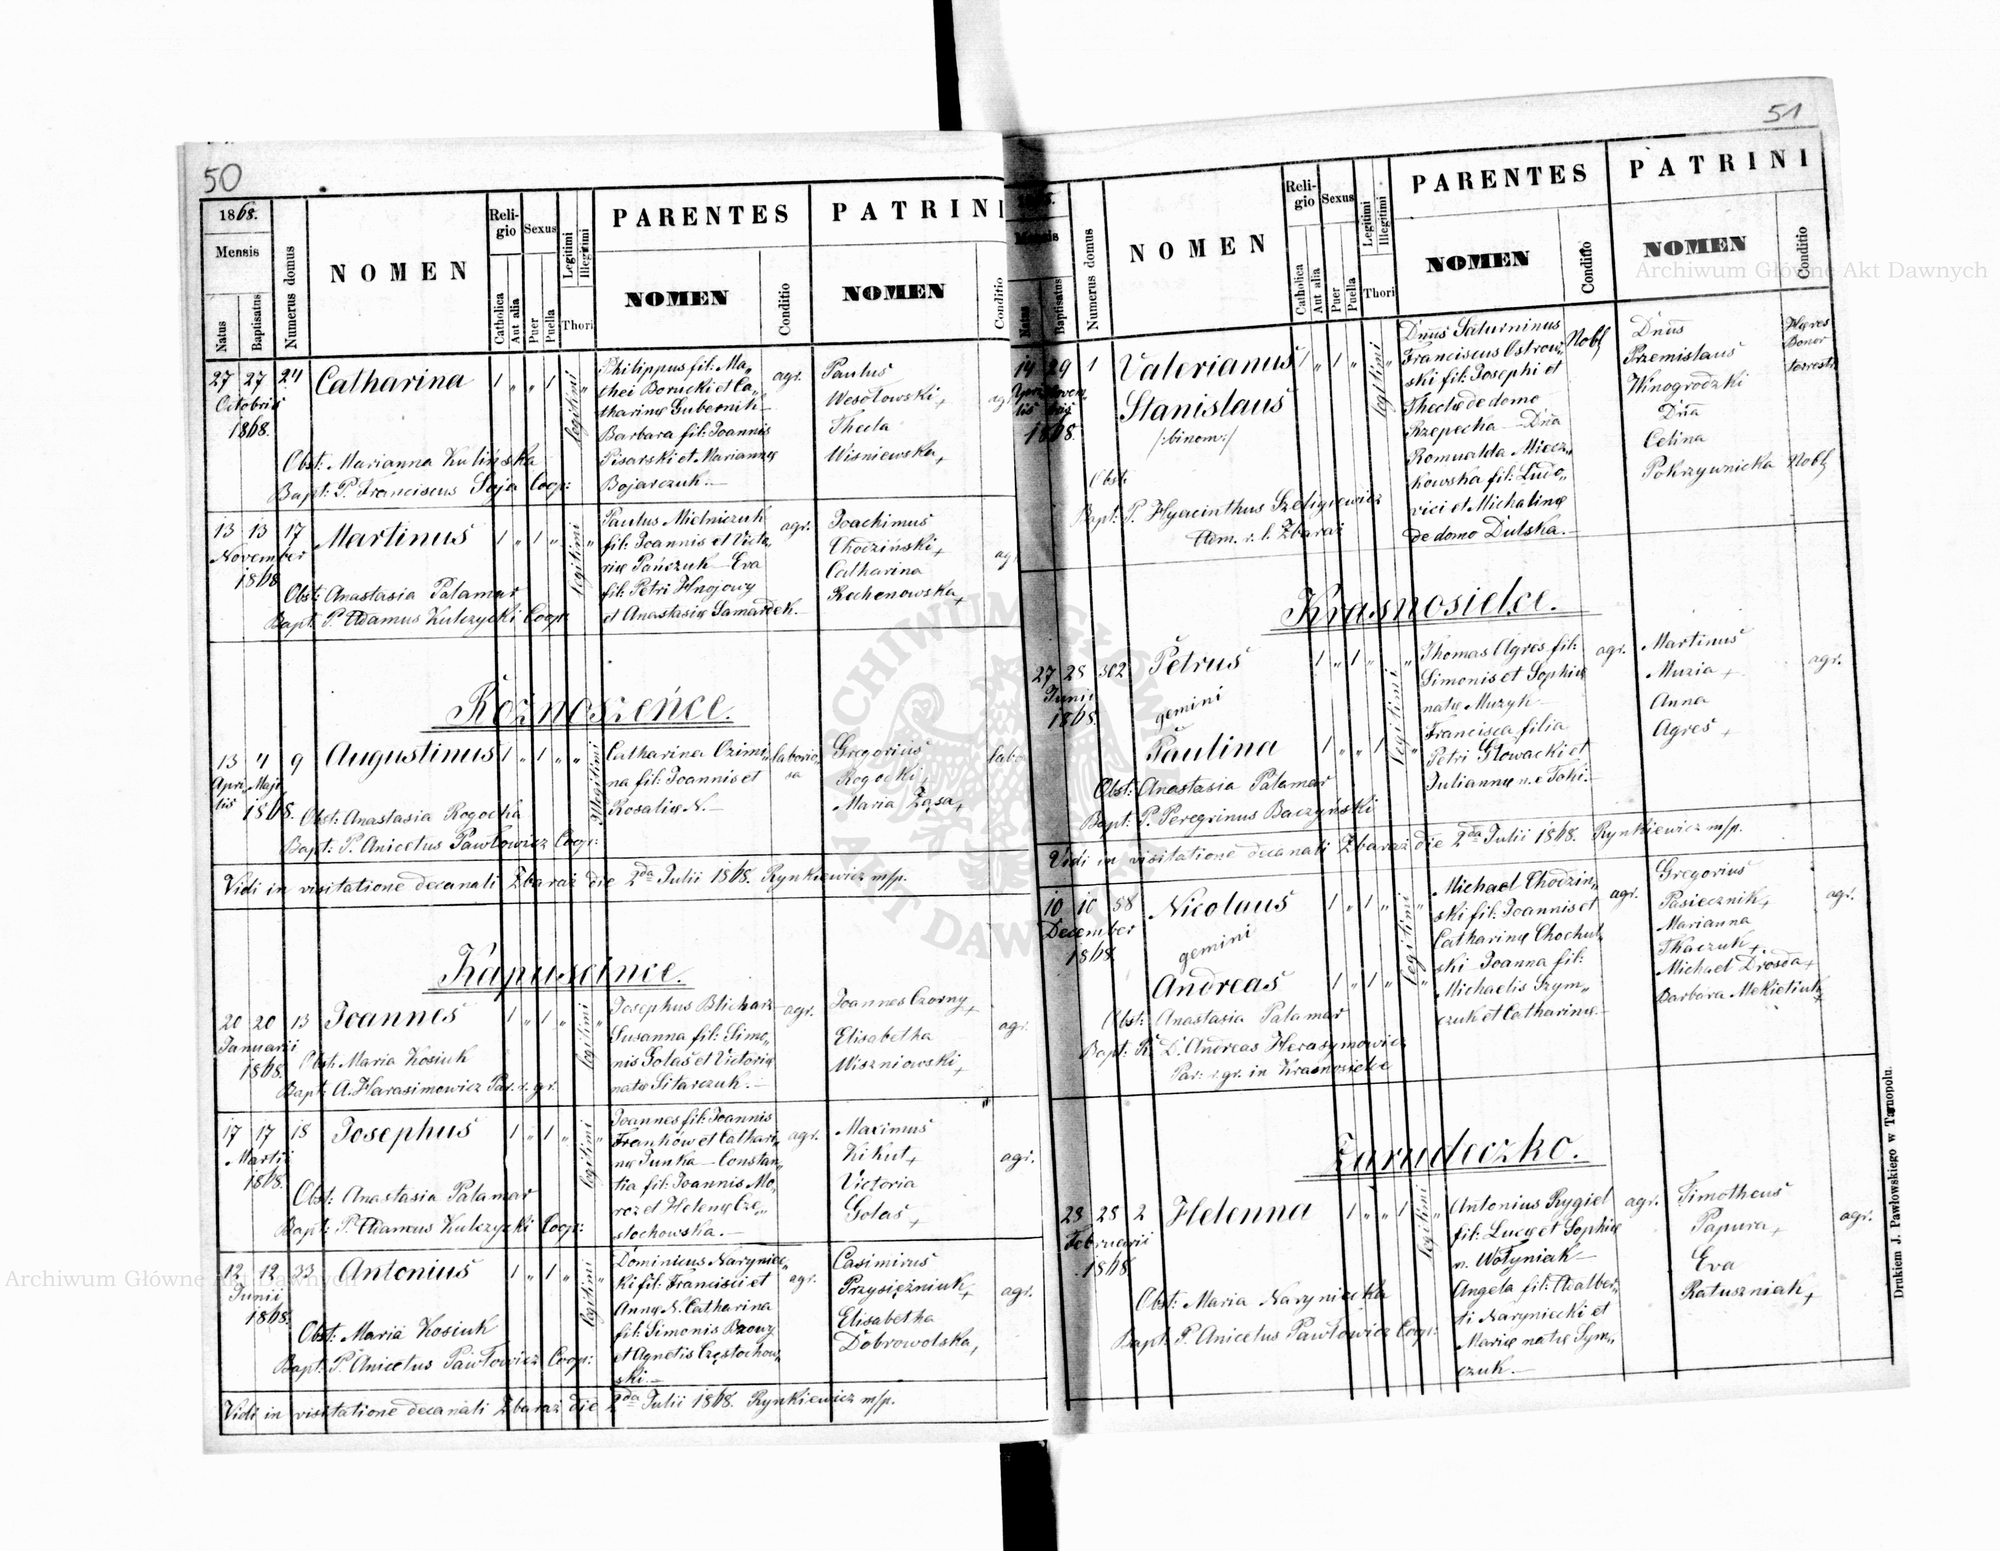 50
1868.
Mensis
Natus
Baptisatus
Numerus domus
NOMEN
Religio
Catholica
Aut alia
Sexus
Puer
Puella
Legitimi
Illegitimi
Thori
PARENTES
NOMEN
Conditio
PATRINI
NOMEN
Conditio
27 27 24 Catharina 1 „ „ 1 legitimi „
Octobris
1868.
Obst: Marianna Kulińska
Bapt: P. Franciscus Soja Coop:
Philippus fil: Ma„
thei Borucki et Ca„
tharinę Gubernik—
Barbara fil: Joannis
Pisarski et Mariannę
Bojarczuk.—
agr.
Paulus
Wesołowski +
Thecla
Wisniewska +
13 13 17 Martinus 1 „ 1 „ legitimi „
November
1868
Obst: Anastasia Palamar
Bapt: P. Adamus Kulczycki Coop:
Paulus Mielniczuk
fil: Joannis et Victo„
rię Pańczuk — Eva
fil: Petri Hnojowy
et Anastasię Samardek.
agr.
Joachimus
Chodziński +
Catharina
Kochonowska +
Rożnoszeńce.
13 4 9 Augustinus 1 „ 1 „ „ Illegitimi
Apri„ Maji
lis 1868.
Obst: Anastasia Rogocka
Bapt: P. Anicetus Pawłowicz Coop:
Catharina Ozimi„
na fil: Joannis et
Rosalię N.—
laborio„
sa
Gregorius
Rogocki +
Maria Ząsa +
Vidi in visitatione decanali Zbaraż die 2da Julii 1868. Rynkiewicz m/p.
Kapuscince.
20 20 13 Joannes 1 „ 1 „ legitimi „
Januarii
1868.
Obst: Maria Kosiuk
Bapt: A. Harasimowicz Par. r. gr.
Josephus Blicharz—
Susanna fil: Simo„
nis Golas et Victorię
natę Sitarczuk.—
agr.
Joannes Czorny +
Elisabetha
Wiszniowski +
agr.
17 17 18 Josephus 1 „ 1 „ legitimi „
Martii
1868.
Obst: Anastasia Palamar
Bapt: P. Adamus Kulczycki Coop:
Joannes fil: Joannis
Franków et Cathari„
nę Junka — Constan„
tia fil: Joannis Mo„
roz et Helenę Czę„
stochowska.—
agr.
Maximus
Kikut +
Victoria
Golas +
agr.
12 12 23 Antonius 1 „ 1 „ legitimi „
Junii
1868.
Obst: Maria Kosiuk
Bapt: P. Anicetus Pawłowicz Coop:
Dominicus Naryniec„
ki fil: Francisci et
Annę N. Catharina
fil: Simonis Bzowy
et Agnetis Częstochow„
ski.—
agr.
Casimirus
Przysiężniuk +
Elisabetha
Dobrowolska +
agr.
Vidi in visitatione decanali Zbaraż die 2da Julii 1868. Rynkiewicz m/p.
51
Mensis
Natus
Baptisatus
Numerus domus
NOMEN
Religio
Catholica
Aut alia
Sexus
Puer
Puella
Legitimi
Illegitimi
Thori
PARENTES
NOMEN
Conditio
PATRINI
NOMEN
Conditio
14 29 1 Valerianus 1 „ 1 „ legitimi „
Stanislaus
/:binom:/
1868.
Obst:
Bapt: P. Hyacinthus Szeligiewicz
Adm. r. l. Zbaraż
Dnus Saturninus
Franciscus Ostrow„
ski fil: Josephi et
Theclę de domo
Rzepecka — Dna
Romualda Miecz„
kowska fil: Ludo„
vici et Michalinę
de domo Dulska.—
Nobl
Dnus
Przemislaus
Winogrodzki
Dna
Celina
Pokrzywnicka
Hæres
Bonor
terrestr
Nobl
Krasnosielce.
27 28 302 Petrus 1 „ 1 „ legitimi „
Junii
1868.
gemini
Paulina 1 „ „ 1 „
Obst: Anastasia Palamar
Bapt: P. Peregrinus Baczyński
Thomas Agres fil:
Simonis et Sophię
natę Muzyk—
Francisca filia
Petri Głowacki et
Juliannę
agr.
Martinus
Muzia +
Anna
Agres +
agr.
Vidi in visitatione decanali Zbaraż die 2da Julii 1868. Rynkiewicz m/p.
10 10 58 Nicolaus 1 „ 1 „ legitimi „
December
1868.
gemini
Andreas 1 „ 1 „ „
Obst: Anastasia Palamar
Bapt: R. D. Andreas Herasymowicz
Par: r. gr. in Krasnosielce
Michael Chodzin„
ski fil: Joannis et
Catharinę Chochul„
ski — Joanna fil:
Michaelis Szym„
czuk et Catharinę.—
agr.
Gregorius
Pasiecznik +
Marianna
Tkaczuk +
Michael Drosda +
Barbara Mekietiuk +
agr.
Zarudeczko.
28 28 2 Helenna 1 „ „ 1 legitimi „
Februarii
1868.
Obst: Maria Naryniecka
Bapt: P. Anicetus Pawłowicz Coop:
Antonius Rygiel
fil: Lucę et Sophię
n. Wołyniak—
Angela fil: Adalber„
ti Naryniecki et
Marię natę Szym„
czuk.—
agr.
Timotheus
Papura +
Eva
Ratuszniak +
agr.
Drukiem J. Pawłowskiego w Tarnopolu.
Archiwum Główne Akt Dawnych
Archiwum Główne Akt Dawnych
ARCHIWUM GŁÓWNE AKT DAWNYCH